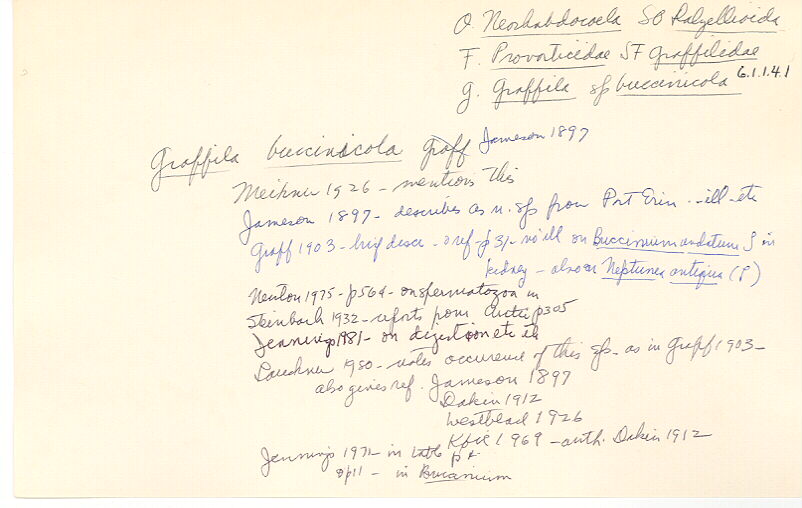 O. Neorhabdocoela SO Dalyellioida
F. Provorticidae SF Graffilidae
g. Graffila sp buccinicola 6.1.1.4.1
Graffila buccinicola Graff Jameson 1897
Meixner 1926 - mentions this
Jameson 1897 - describes as n. sp from Port Erin - ill - etc
Graff 1903 - brief descr - & ref - p 31 - no ill on Buccinium undatum in
kidney - also on Neptunea antiqua (P)
1975 - p564 - on spermatozoa in
Steinbock 1932 - reports from Arctic p305
Jennings 1981 - on digestion etc
Lauckner 1980 - notes occurence of this sp. as in Graff 1903 -
also gives ref. Jameson 1897
Dakin 1912
Westblad 1926
1969 - auth. Dakin 1912
Jennings 1971 - in table p
& p11 - in Buccinium